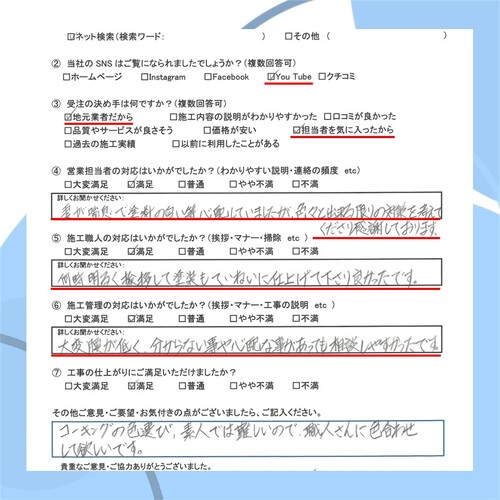 ☑ネット検索(検索ワード:　　　　　　　) □その他 (　　　　　　　)
② 当社の SNS はご覧になられましたでしょうか?(複数回答可)
□ホームページ □Instagram □Facebook ☑You Tube □クチコミ
③ 受注の決め手は何ですか?(複数回答可)
☑地元業者だから □施工内容の説明がわかりやすかった □口コミが良かった
□品質やサービスが良さそう □価格が安い ☑担当者を気に入ったから
□過去の施工実績 □以前に利用したことがある
④ 営業担当者の対応はいかがでしたか?(わかりやすい説明・連絡の頻度 etc)
□大変満足 ☑満足 □普通 □やや不満 □不満
詳しくお聞かせください:
妻が喘息で塗料の匂い等心配していましたが、色々と出来る限りの対策を考えて
くださり感謝しております。
⑤ 施工職人の対応はいかがでしたか?(挨拶・マナー・掃除 etc)
□大変満足 ☑満足 □普通 □やや不満 □不満
詳しくお聞かせください:
何時も明るく挨拶して塗装もていねいに仕上げて下さり良かったです。
⑥ 施工管理の対応はいかがでしたか?(挨拶・マナー・工事の説明 etc)
□大変満足 ☑満足 □普通 □やや不満 □不満
詳しくお聞かせください:
大変腰が低く、分からない事や心配な事があっても相談しやすかったです。
⑦ 工事の仕上がりにご満足いただけましたか?
□大変満足 ☑満足 □普通 □やや不満 □不満
その他ご意見・ご要望・お気付きの点がございましたら、ご記入ください。
コーキングの色選び、素人では難しいので、職人さんに色合わせ
して欲しいです。
貴重なご意見・ご協力ありがとうございました。